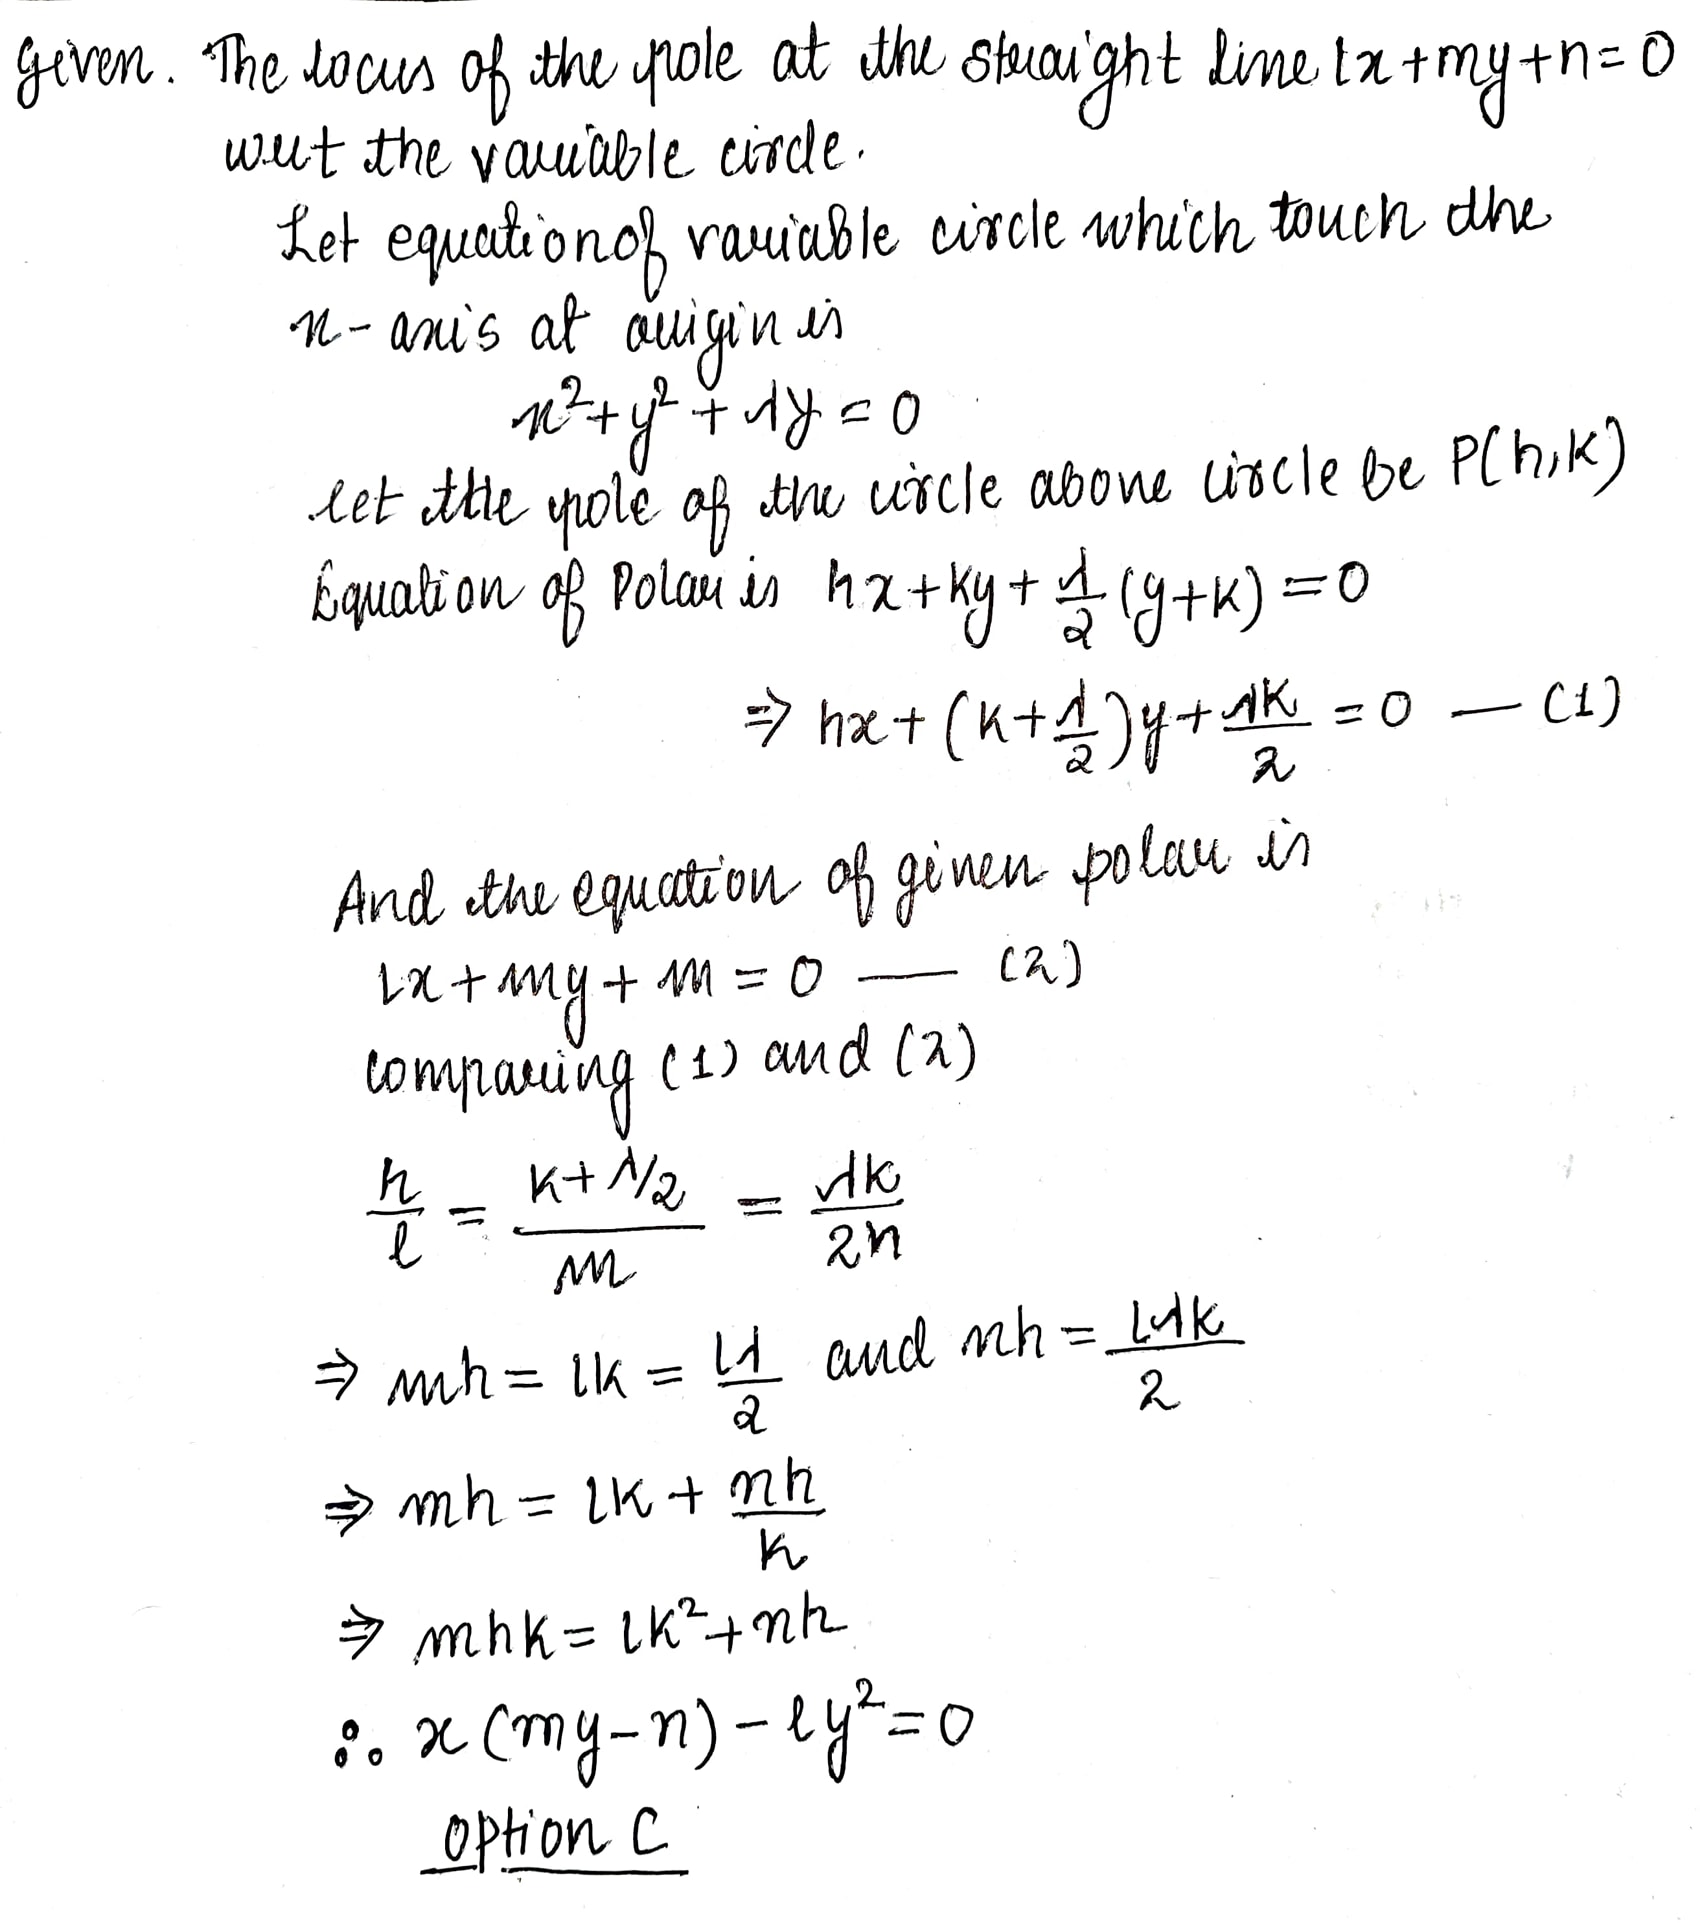 Given. The locus of the pole at the straight line lx+my+n=0
wrt the variable circle.
Let equation of variable circle which touch the
x-axis at origin is
x²+y²+λy=0
let the pole of the circle above circle be P(h,k)
Equation of Polar is hx+ky+λ/2(y+k)=0
⇒ hx+(k+λ/2)y+λk/2=0 — (1)
And the equation of given polar is
lx+my+m=0 — (2)
comparing (1) and (2)
h/l = (k+λ/2)/m = λk/2n
⇒ mh=lk=lλ/2 and nh=lλk/2
⇒ mh=lk+nh/k
⇒ mhk=lk²+nh
∴ x(my-n)-ly²=0
option C